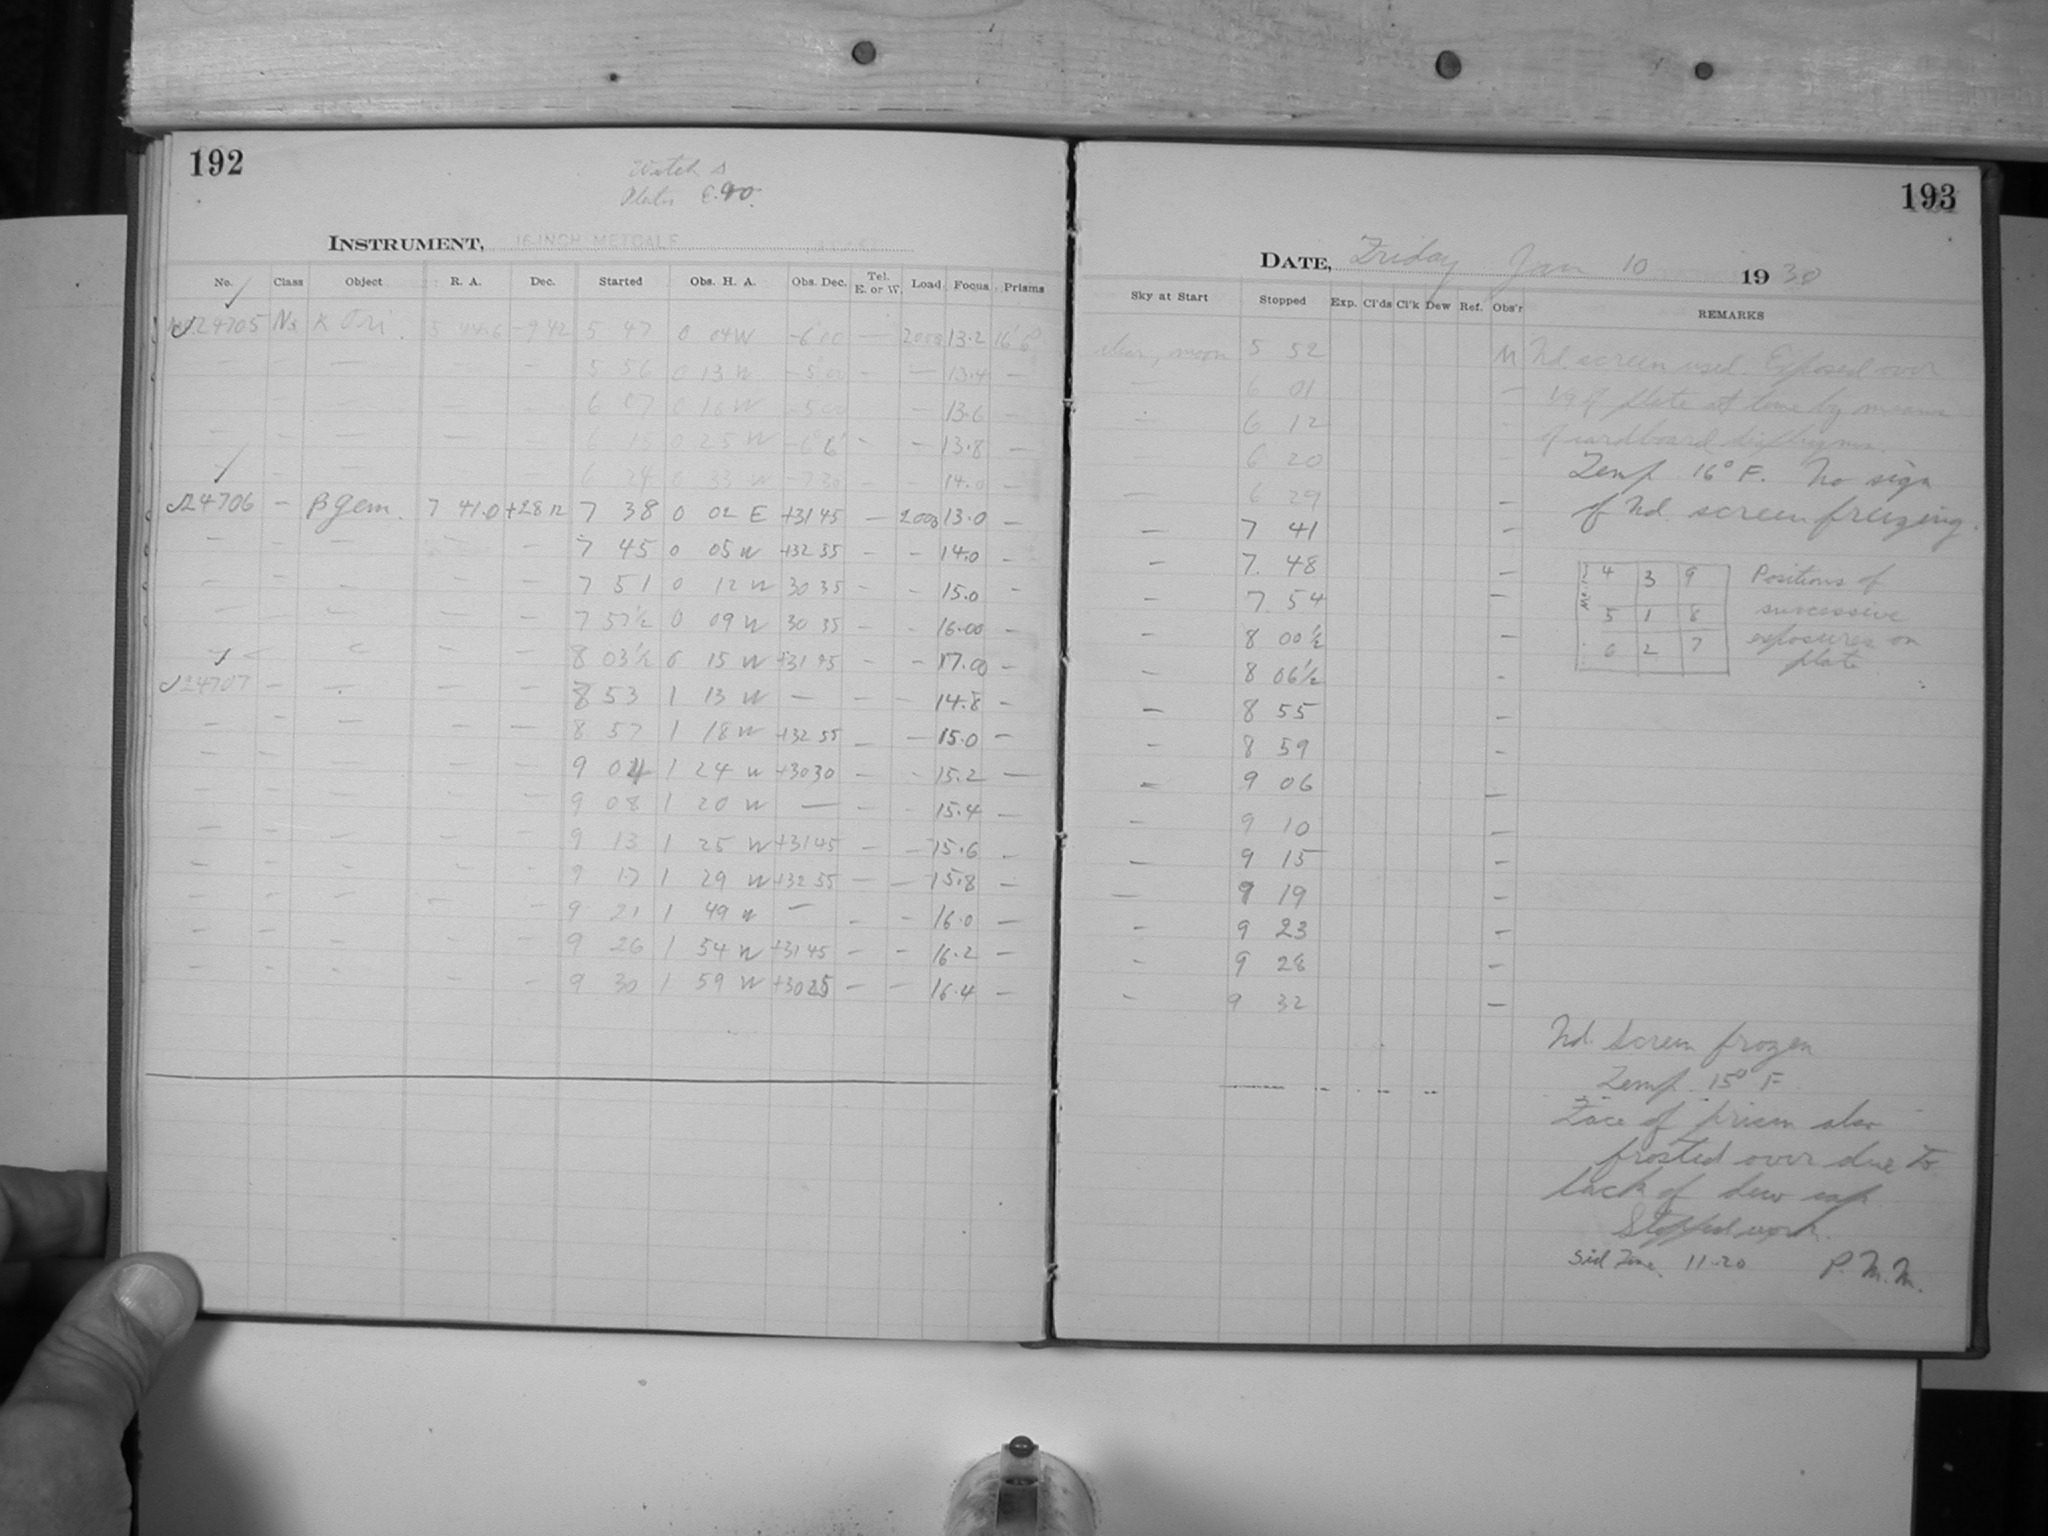 192
Watch s
Plates E.90.
INSTRUMENT, 16-INCH METCALF
No. Class Object R. A. Dec. Started Obs. H. A. Obs. Dec. Tel. E. or W. Load Focus Prisms
24705 Ns K Ori. 5 44.6 -9 42 5 47 0 04 W -6 00 — 2000 13.2
— — — 5 56 0 13 W -5 00 — — 13.4 —
6 07 0 16 W -5 00 — 13.6 —
— — — — — 6 15 0 25 W — — 13.8 —
6 24 0 33 W -7 30 — — 14.0 —
24706 — β Gem. 7 41.0 +28 12 7 38 0 02 E +31 45 — 2000 13.0 —
— — — — — 7 45 0 05 W +32 35 — — 14.0 —
— — — — — 7 51 0 12 W 30 35 — — 15.0 —
— — — — 7 57½ 0 09 W 30 35 — — 16.00 —
— — — — 8 03½ 0 15 W +31 45 — — 17.00 —
24707 — — — — 8 53 1 13 W — — — 14.8 —
— — — — — 8 57 1 18 W +32 55 — — 15.0 —
— — — — — 9 04 1 24 W +30 30 — — 15.2 —
— — — — — 9 08 1 20 W — — — 15.4 —
— — — — — 9 13 1 25 W +31 45 — — 15.6 —
— — — — — 9 17 1 29 W +32 55 — — 15.8 —
— — — — — 9 21 1 49 W — — — 16.0 —
— — — — — 9 26 1 54 W +31 45 — — 16.2 —
— — — — — 9 30 1 59 W +30 25 — — 16.4 —
193
DATE, Friday Jan 10 1930
Sky at Start Stopped Exp. Cl'ds Cl'k Dew Ref. Obs'r REMARKS
clear, moon 5 52 M Nd. screen used. Exposed over
— 6 01 — 1/9 of plate at time by means
— 6 12 — of cardboard diaphragms.
— 6 20 — Temp. 16° F. No sign
— 6 29 — of Nd. screen freezing.
— 7 41 —
— 7. 48 —
— 7. 54 —
— 8 00½ —
— 8 06½ —
— 8 55 —
— 8 59 —
— 9 06 —
— 9 10 —
— 9 15 —
— 9 19 —
— 9 23 —
— 9 28 —
— 9 32 —
4 3 9
5 1 8
6 2 7
Positions of
successive
exposures on
plate
Nd. Screen frozen
Temp. 15° F
Face of prism also
frosted over due to
lack of dew cap
Stopped work.
Sid Time. 11.20 P. M. M.